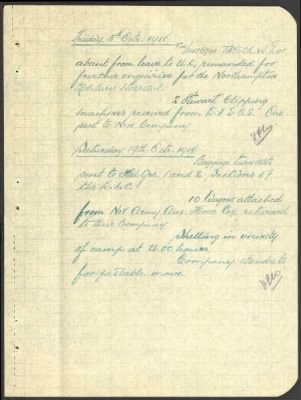 Friday 18th Octr. 1918
absent from leave to U.K, remanded for
further enquiries for the Northampton
Military Hospital
2 Stewart Clipping
machines received from One
sent to No 2 Company
Saturday 19th Octr. 1918
Baggage turnouts
sent to Hd. Qrs. 1 and 2 Sections of
the
10 Wagons attached
from No 1 Army Aux. Horse Coy, returned
to their Company
Shelling in vicinity
of camp at 24.00 hours
Company stands to
for probable move